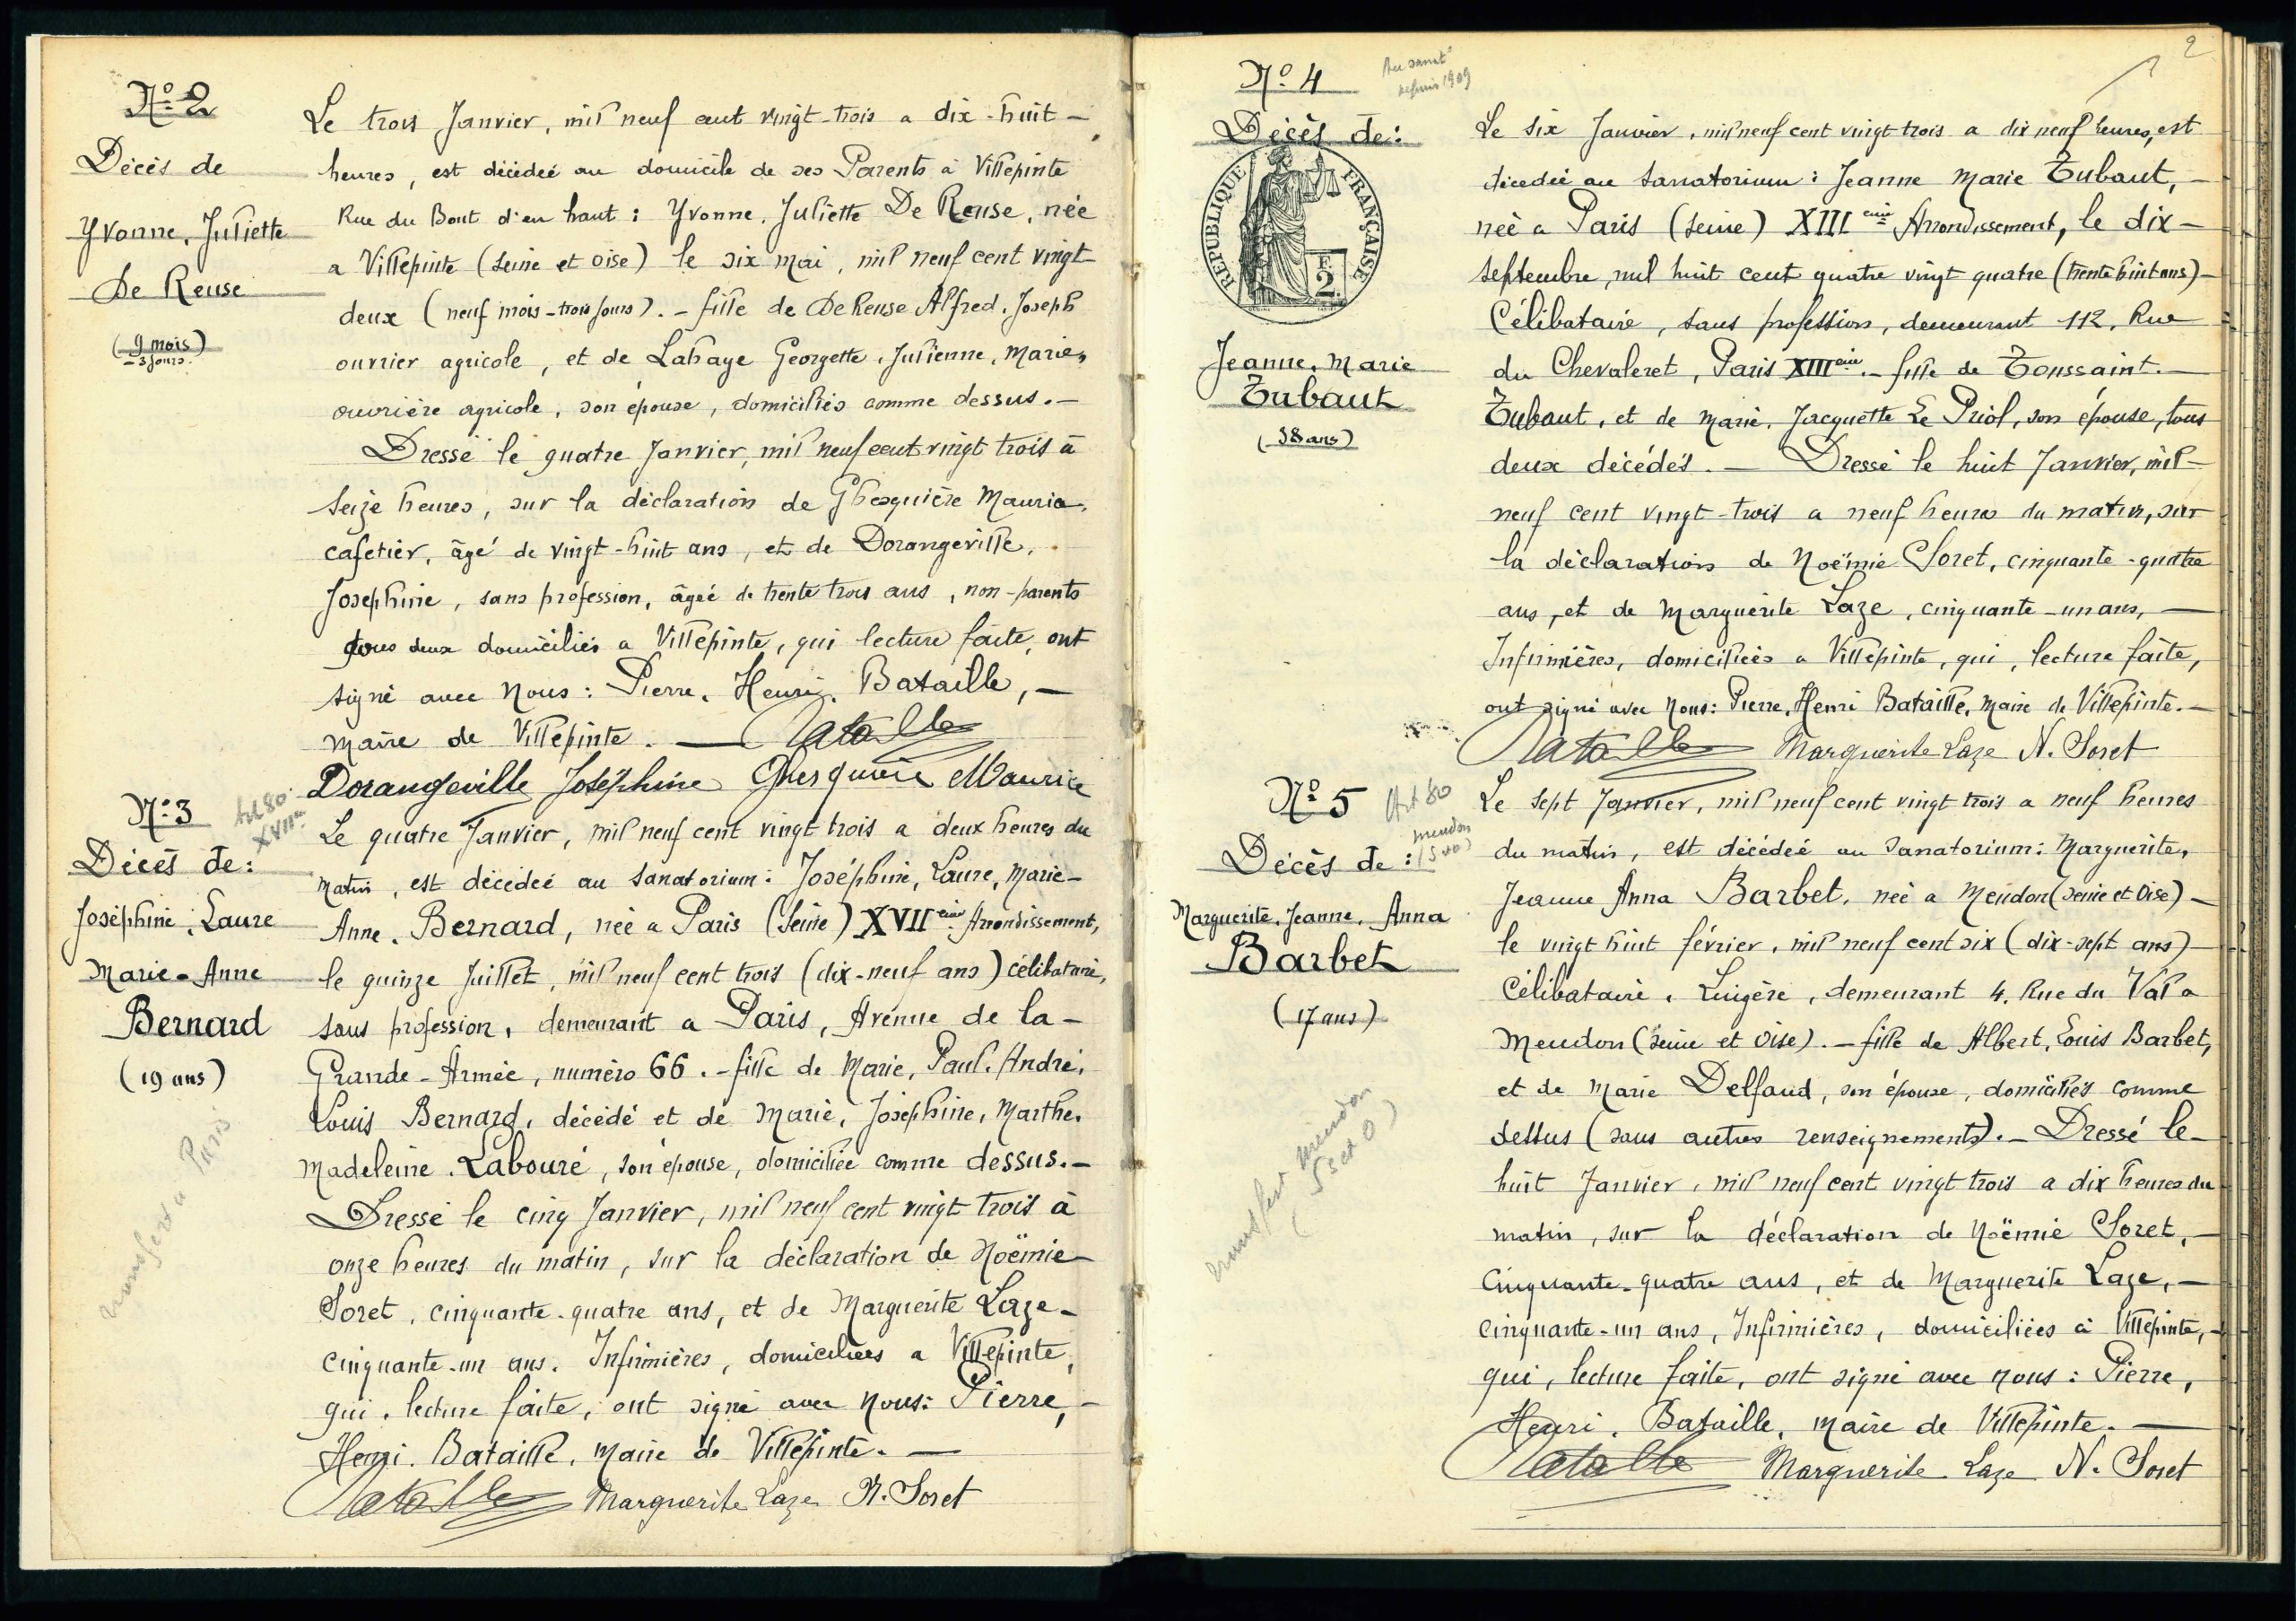 Nº 2
Décès de
Yvonne, Juliette
De Reuse
(9 mois)
3 jours
Le trois Janvier, mil neuf cent vingt-trois a dix-huit —
heures, est décédée au domicile de ses Parents à Villepinte
Rue du Bout d'en haut : Yvonne, Juliette De Reuse, née
a Villepinte (Seine et Oise) le six mai, mil neuf cent vingt
deux (neuf mois-trois jours). - fille de De Reuse Alfred, Joseph
ouvrier agricole, et de Lahaye Georgette, Julienne, Marie,
ouvrière agricole, son épouse, domiciliés comme dessus. —
Dressé le quatre Janvier, mil neuf cent vingt trois à
seize heures, sur la déclaration de Ghesquière Maurice,
cafetier, âgé de vingt-huit ans, et de Dorangeville,
Joséphine, sans profession, âgée de trente trois ans, non-parents
tous deux domiciliés a Villepinte, qui lecture faite, ont
signé avec Nous : Pierre, Henri, Bataille, —
maire de Villepinte. — Bataille
Dorangeville Joséphine Ghesquière Maurice
Nº 3
Art 80
XVIIe
Décès de :
Joséphine, Laure
Marie-Anne
Bernard
(19 ans)
transfert a Paris
Le quatre Janvier, mil neuf cent vingt trois a deux heures du
matin, est décédée au Sanatorium : Joséphine, Laure, Marie-
Anne, Bernard, née a Paris (Seine) XVIIème Arrondissement,
le quinze Juillet, mil neuf cent trois (dix-neuf ans) célibataire,
sans profession, demeurant a Paris, Avenue de la —
Grande-Armée, numéro 66. - fille de Marie, Paul, André,
Louis Bernard, décédé et de Marie, Joséphine, Marthe,
Madeleine Labouré, son épouse, domiciliée comme dessus. —
Dressé le cinq Janvier, mil neuf cent vingt trois à
onze heures du matin, sur la déclaration de Noëmie
Soret, cinquante-quatre ans, et de Marguerite Laze —
cinquante-un ans, Infirmières, domiciliées a Villepinte,
qui, lecture faite, ont signé avec Nous : Pierre, —
Henri, Bataille, Maire de Villepinte. —
Bataille Marguerite Laze N. Soret
2
Nº 4
Au sanat
depuis 1909
Décès de :
RÉPUBLIQUE FRANÇAISE
2 F
Jeanne, Marie
Tubaut
(38 ans)
Le six Janvier, mil neuf cent vingt trois a dix neuf heures, est
décédée au Sanatorium : Jeanne Marie Tubaut, —
née a Paris (Seine) XIIIème Arrondissement, le dix —
septembre, mil huit cent quatre vingt quatre (trente huit ans) —
Célibataire, sans profession, demeurant 112, Rue
du Chevaleret, Paris XIIIème. - fille de Toussaint. —
Tubaut, et de Marie, Jacquette Le Priol, son épouse, tous
deux décédés. — Dressé le huit Janvier, mil —
neuf cent vingt-trois a neuf heures du matin, sur
la déclaration de Noëmie Soret, cinquante-quatre
ans, et de Marguerite Laze, cinquante-un ans, —
Infirmières, domiciliées a Villepinte, qui, lecture faite,
ont signé avec Nous : Pierre, Henri Bataille, Maire de Villepinte. —
Bataille Marguerite Laze N. Soret
Nº 5
Art 80
meudon
(S et O)
Décès de :
Marguerite, Jeanne, Anna
Barbet
(17 ans)
transfert meudon
(S et O)
Le sept Janvier, mil neuf cent vingt trois a neuf heures
du matin, est décédée au Sanatorium : Marguerite,
Jeanne Anna Barbet, née a Meudon (Seine et Oise) —
le vingt huit février, mil neuf cent six (dix-sept ans) —
Célibataire, Lingère, demeurant 4, Rue du Val a
Meudon (Seine et Oise). - fille de Albert, Louis Barbet,
et de Marie Delfaud, son épouse, domiciliés comme
dessus (sans autres renseignements). — Dressé le —
huit Janvier, mil neuf cent vingt trois a dix heures du
matin, sur la déclaration de Noëmie Soret, —
Cinquante-quatre ans, et de Marguerite Laze, —
cinquante-un ans, Infirmières, domiciliées à Villepinte, —
qui, lecture faite, ont signé avec nous : Pierre,
Henri, Bataille, Maire de Villepinte. —
Bataille Marguerite Laze N. Soret